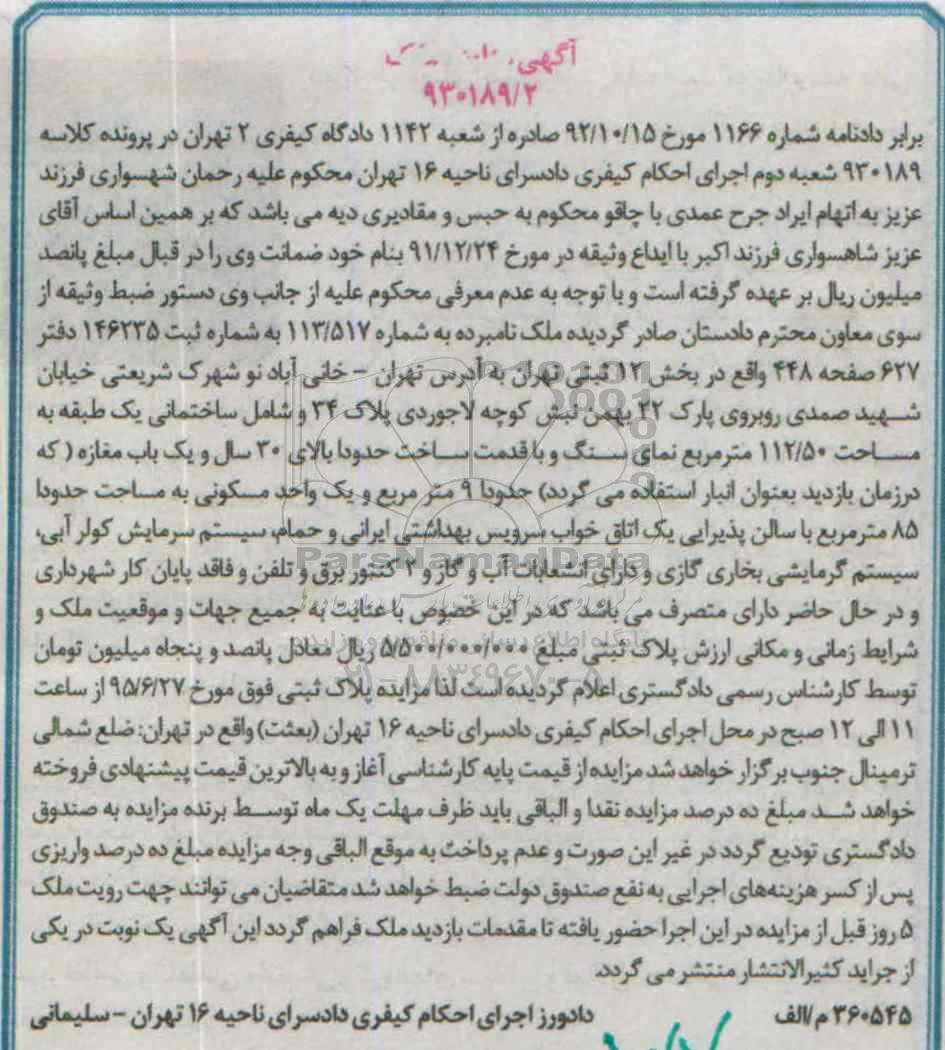 آگهی
۹۳۰۱۸۹/۲
برابر دادنامه شماره ۱۱۶۶ مورخ ۹۲/۱۰/۱۵ صادره از شعبه ۱۱۴۲ دادگاه کیفری ۲ تهران در پرونده کلاسه
۹۳۰۱۸۹ شعبه دوم اجرای احکام کیفری دادسرای ناحیه ۱۶ تهران محکوم علیه رحمان شهسواری فرزند
عزیز به اتهام ایراد جرح عمدی با چاقو محکوم به حبس و مقادیری دیه می باشد که بر همین اساس آقای
عزیز شاهسواری فرزند اکبر با ایداع وثیقه در مورخ ۹۱/۱۲/۲۴ بنام خود ضمانت وی را در قبال مبلغ پانصد
میلیون ریال بر عهده گرفته است و با توجه به عدم معرفی محکوم علیه از جانب وی دستور ضبط وثیقه از
سوی معاون محترم دادستان صادر گردیده ملک نامبرده به شماره ۱۱۳/۵۱۷ به شماره ثبت ۱۴۶۲۳۵ دفتر
۶۲۷ صفحه ۴۴۸ واقع در بخش ۱۲ ثبتی تهران به آدرس تهران - خانی آباد نو شهرک شریعتی خیابان
شهید صمدی روبروی پارک ۲۲ بهمن نبش کوچه لاجوردی پلاک ۳۴ و شامل ساختمانی یک طبقه به
مساحت ۱۱۲/۵۰ مترمربع نمای سنگ و با قدمت ساخت حدودا بالای ۳۰ سال و یک باب مغازه ( که
درزمان بازدید بعنوان انبار استفاده می گردد) حدودا ۹ متر مربع و یک واحد مسکونی به مساحت حدودا
۸۵ مترمربع با سالن پذیرایی یک اتاق خواب سرویس بهداشتی ایرانی و حمام، سیستم سرمایش کولر آبی،
سیستم گرمایشی بخاری گازی و دارای انشعابات آب و گاز و ۲ کنتور برق و تلفن و فاقد پایان کار شهرداری
و در حال حاضر دارای متصرف می باشد که در این خصوص با عنایت به جمیع جهات و موقعیت ملک و
شرایط زمانی و مکانی ارزش پلاک ثبتی مبلغ ۵/۵۰۰/۰۰۰/۰۰۰ ریال معادل پانصد و پنجاه میلیون تومان
توسط کارشناس رسمی دادگستری اعلام گردیده است لذا مزایده پلاک ثبتی فوق مورخ ۹۵/۶/۲۷ از ساعت
۱۱ الی ۱۲ صبح در محل اجرای احکام کیفری دادسرای ناحیه ۱۶ تهران (بعثت) واقع در تهران: ضلع شمالی
ترمینال جنوب برگزار خواهد شد مزایده از قیمت پایه کارشناسی آغاز و به بالاترین قیمت پیشنهادی فروخته
خواهد شد مبلغ ده درصد مزایده نقدا و الباقی باید ظرف مهلت یک ماه توسط برنده مزایده به صندوق
دادگستری تودیع گردد در غیر این صورت و عدم پرداخت به موقع الباقی وجه مزایده مبلغ ده درصد واریزی
پس از کسر هزینه‌های اجرایی به نفع صندوق دولت ضبط خواهد شد متقاضیان می توانند جهت رویت ملک
۵ روز قبل از مزایده در این اجرا حضور یافته تا مقدمات بازدید ملک فراهم گردد این آگهی یک نوبت در یکی
از جراید کثیرالانتشار منتشر می گردد.
۳۶۰۵۴۵ م/الف دادورز اجرای احکام کیفری دادسرای ناحیه ۱۶ تهران - سلیمانی
ParsNamadData